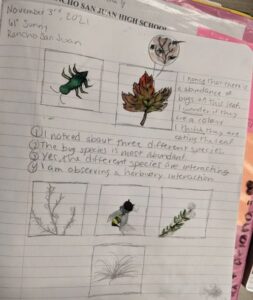 RANCHO SAN JUAN HIGH SCHOOL
November 3rd, 2021
61° Sunny
Rancho San Juan
I notice that there is
a abundance of
bugs on this leaf.
I wonder if they
are a colony
I think they are
eating the leaf
① I noticed about three different species
② The bug species is most abundant
③ Yes, the different species are interacting
④ I am observing a herbivory interaction